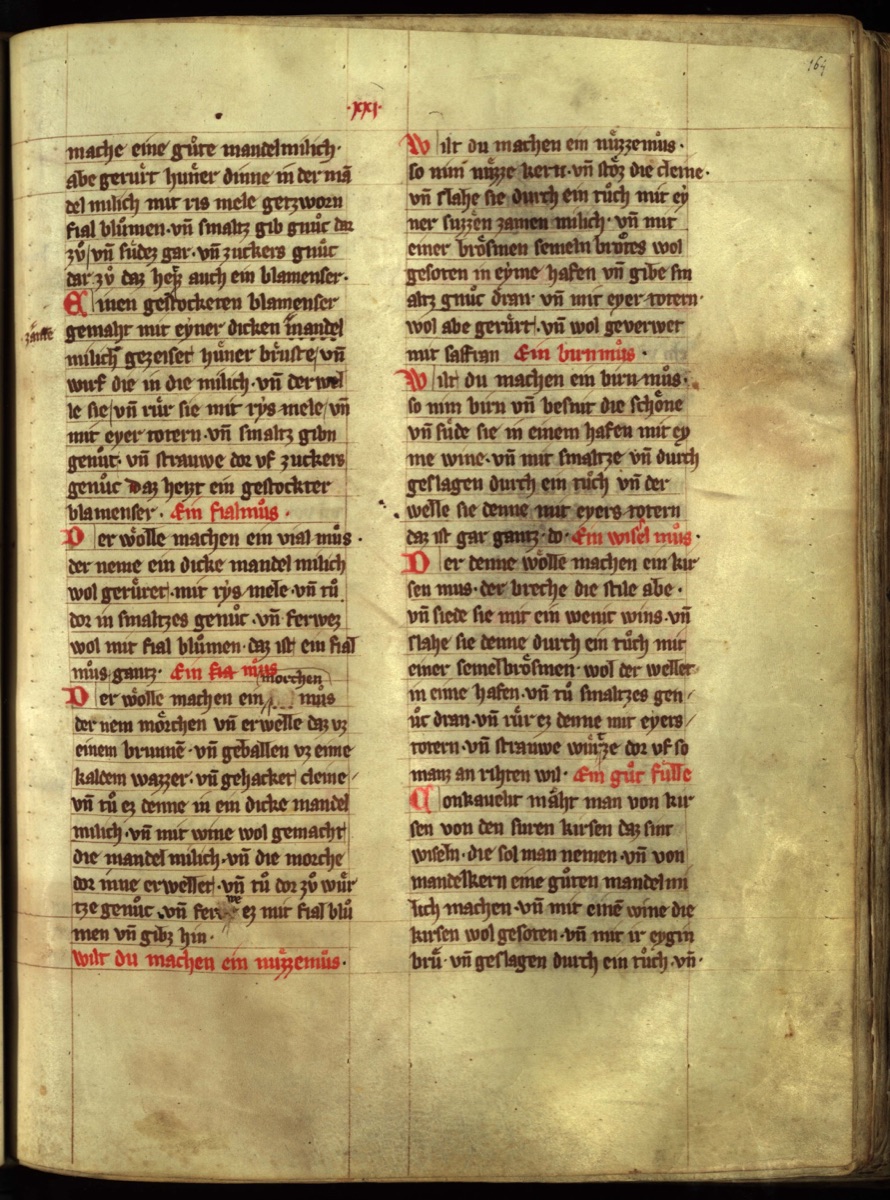 164
·xxi·
mache eine gůte mandelmilich·
abe gerůrt hůner dinne in der mā
del milich mit ris mele getzworn
fial blůmen·vn̄ smaltz gib gnůc dar
zů/vn̄ sůdez gar·vn̄ zuckers gnůc
dar zů daz heiz auch ein blamenser·
Einen gestocketen blamenser
gemaht mit eyner dicken mandel
milich gezeiset hůner brůste/vn̄
wurf die in die milich·vn̄ der wel
le sie/vn̄ růr sie mit rys mele/vn̄
mit eyer totern·vn̄ smaltz gibn
genůc·vn̄ strauwe dor vf zuckers
genůc daz heyzt ein gestockter
blamenser· Ein fialmůs·
Der wölle machen ein vial můs·
der neme ein dicke mandel milich
wol gerůret·mit rys mele·vn̄ tů
dor in smaltzes genůc·vn̄ ferwez
wol mit fial blůmen·daz ist ein fial
můs gantz· Ein fia můs
morchen
Der wölle machen ein můs
der nem mörchen vn̄ erwelle daz vz
einem brunnē·vn̄ geballen vz eime
kaldem wazzer·vn̄ gehacket cleine
vn̄ tů ez denne in ein dicke mandel
milich·vn̄ mit wine wol gemacht
die mandel milich·vn̄ die morche
dor inne erwellet·vn̄ tů dor zů wůr
tze genůc·vn̄ ferwe ez mit fial blů
men vn̄ gibz hin·
wilt du machen ein nůzzemůs·
Wilt du machen ein nůzzemůs·
so nim nůzze kern·vn̄ stöz die cleine·
vn̄ slahe sie durch ein tůch mit ey
ner suzzen zamen milich·vn̄ mit
einer brösmen semeln brotes wol
gesoten in eyme hafen vn̄ gibe sm
altz gnůc dran·vn̄ mit eyer totern·
wol abe gerůrt·vn̄ wol geverwet
mit saffran Ein birnmůs·
Wilt du machen ein birn můs·
so nim birn vn̄ besnit die schöne
vn̄ sůde sie in einem hafen mit ey
me wine·vn̄ mit smaltze vn̄ durch
geslagen durch ein tůch vn̄ der
welle sie denne mit eyers totern
daz ist gar gantz·do· Ein wisel můs·
Der denne wölle machen ein kir
sen mus·der breche die stile abe·
vn̄ siede sie mit ein wenic wins·vn̄
slahe sie denne durch ein tůch mit
einer semelbrösmen·wol der wellet
in eime hafen·vn̄ tů smaltzes gen
ůc dran·vn̄ růr ez denne mit eyers
totern·vn̄ strauwe wůrze dor vf so
manz an rihten wil· Ein gůt fůlle
Conkaueht mäht man von kir
sen von den suren kirsen daz sint
wiseln·die sol man nemen·vn̄ von
mandelkern eine gůten mandelmi
lich machen·vn̄ mit einē wine die
kirsen wol gesoten·vn̄ mit ir eygin
brů·vn̄ geslagen durch ein tůch·vn̄·